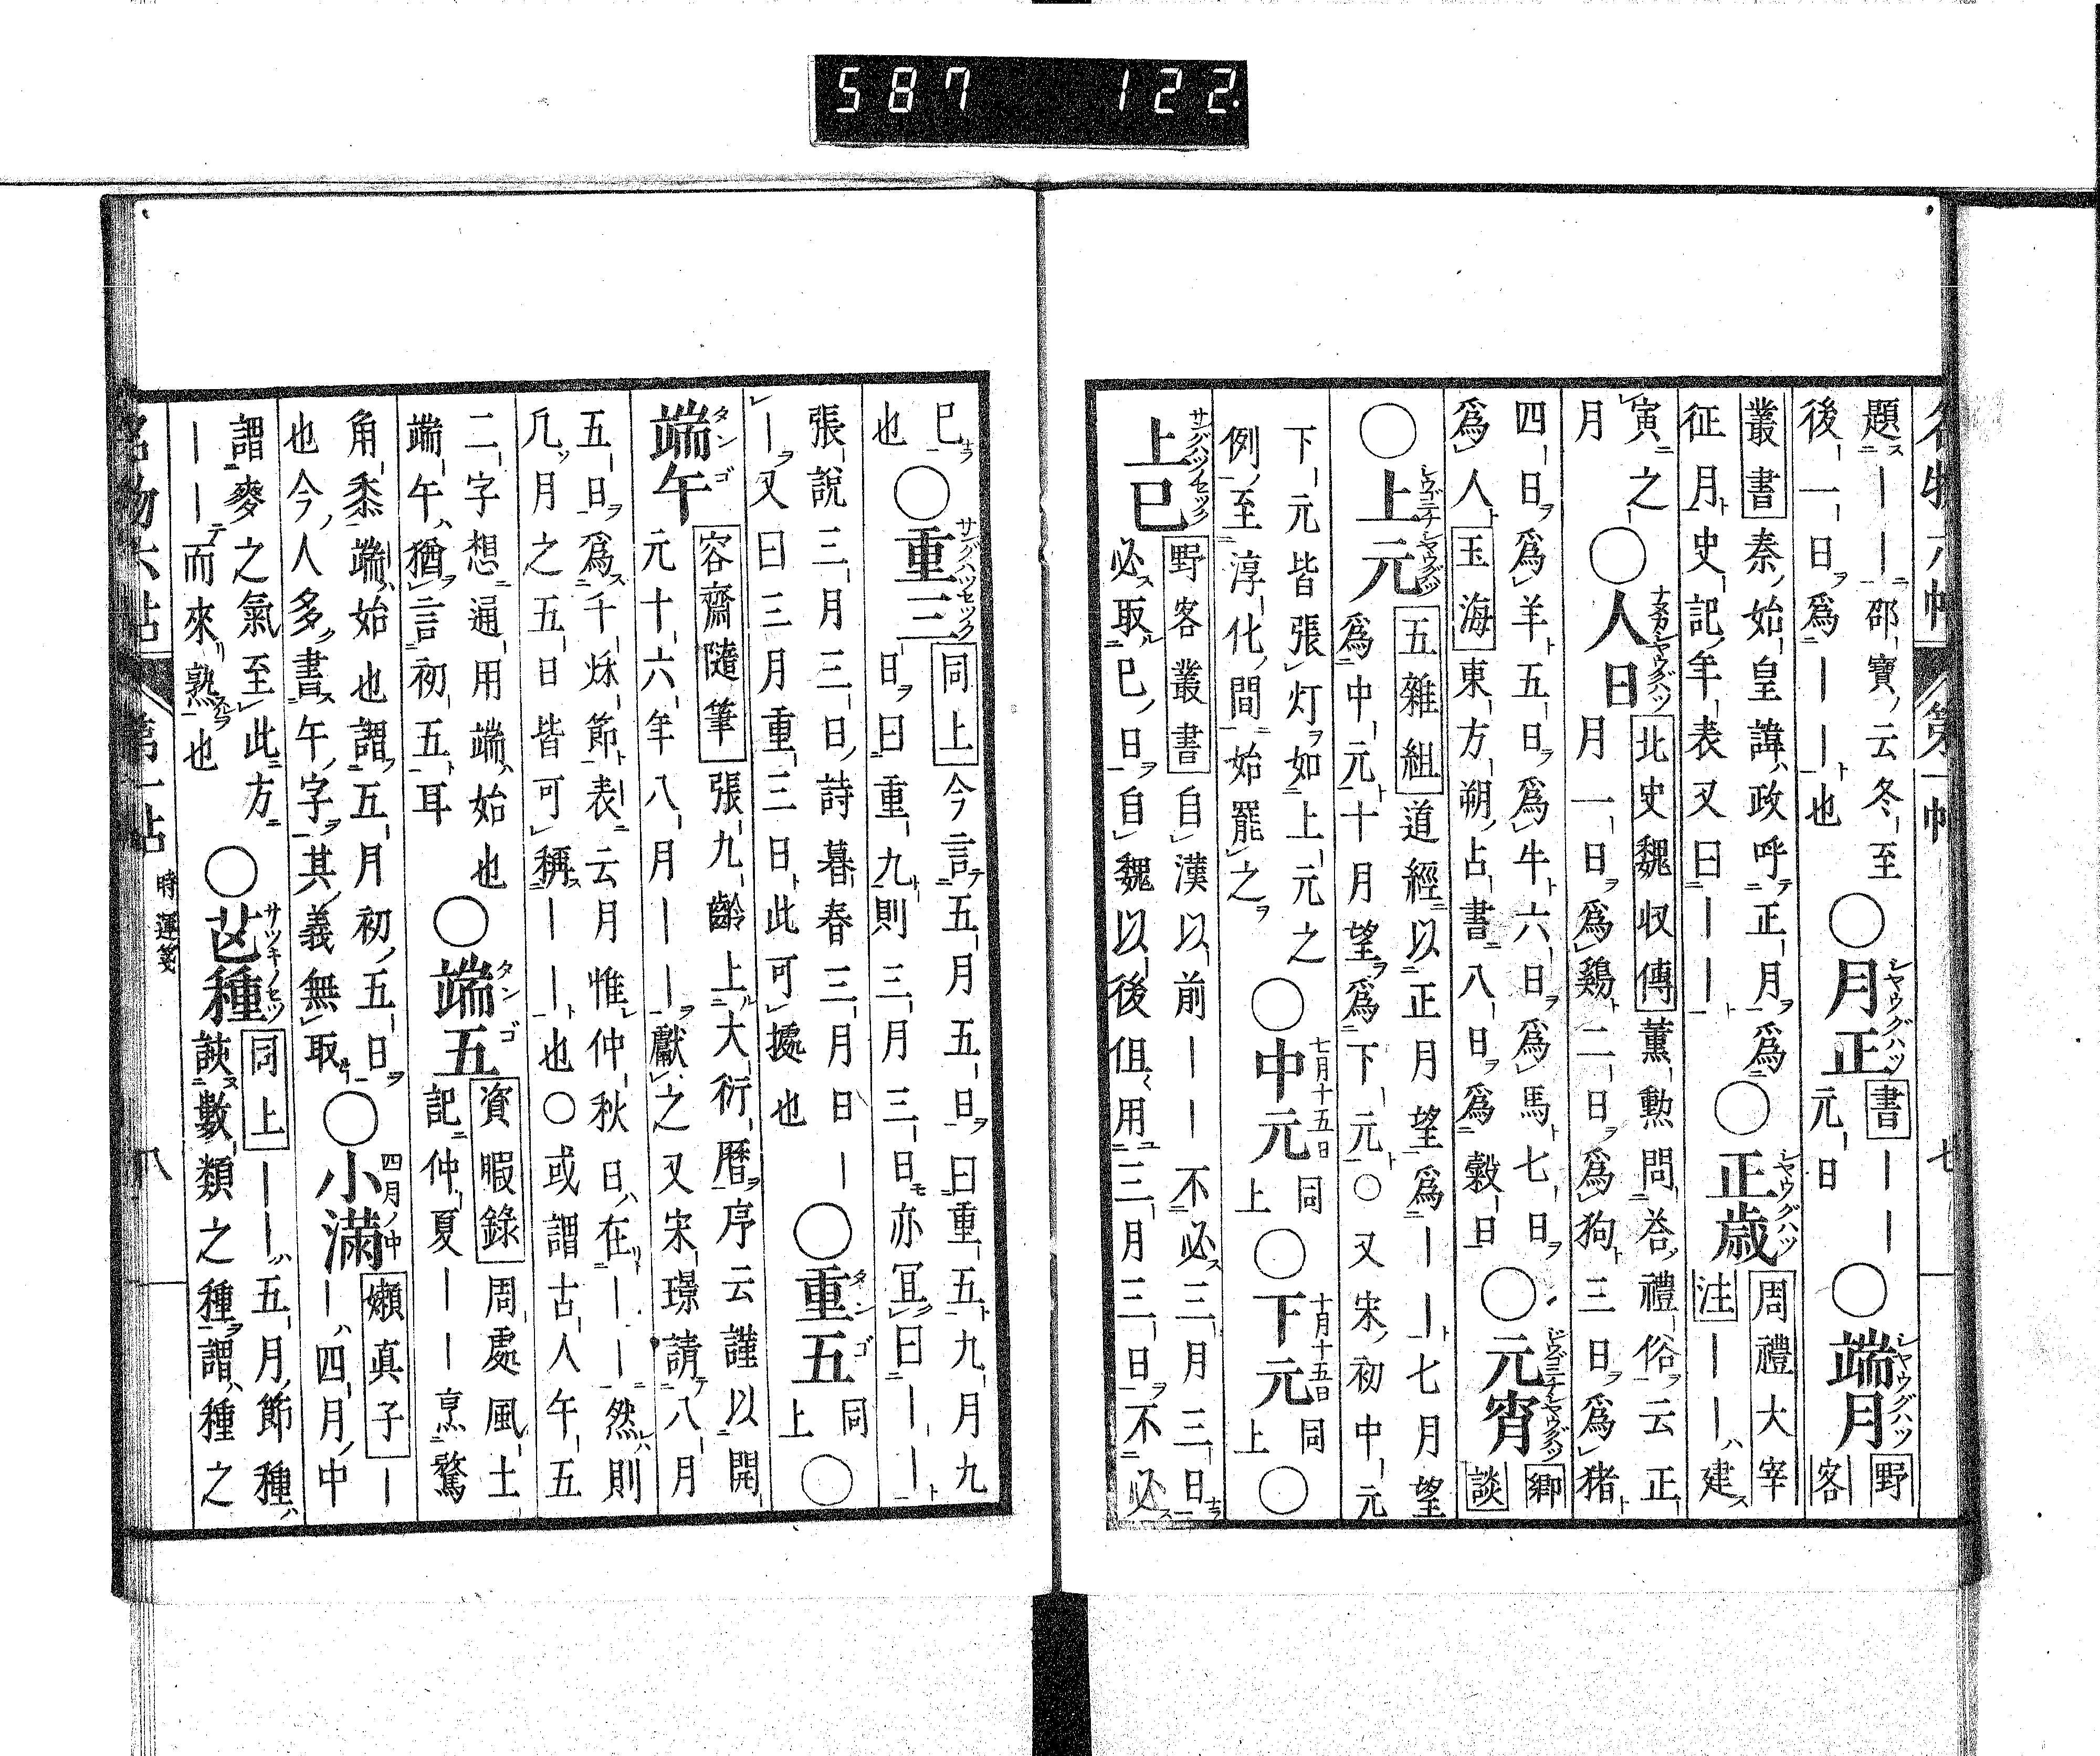 587 122.
名物六帖 第一帖 七
題――邵寶云冬至
後一日爲――也
○月正 書――
元日
○端月 野客
叢書 秦始皇諱政呼正月爲
征月史記年表又曰――
○正歲 周禮大宰
注――建
寅之
月
○人日 北史魏収傳 薫勲問荅禮俗云正
月一日爲鷄二日爲狗三日爲猪
四日爲羊五日爲牛六日爲馬七日
爲人 玉海 東方朔占書八日爲穀日
○元宵 鄉談
○上元 五雜組 道經以正月望爲――七月望
爲中元十月望爲下元○又宋初中元
下元皆張灯如上元之
例至淳化間始罷之
○中元 七月十五日 同上
○下元 十月十五日 同上
○
上巳 野客叢書 自漢以前――不必三月三日
必取巳日自魏以後但用三月三日不必
巳
也
○重三 同上 今言五月五日曰重五九月九
日曰重九則三月三日亦冝曰――
張說三月三日詩暮春三月日―
―又曰三月重三日此可據也
○重五 タンゴ 同上
○
端午 タンゴ 容齋隨筆 張九齡上大衍曆序云謹以開
元十六年八月――獻之又宋璟請八月
五日爲千秌節表云月惟仲秋日在――然則
凡月之五日皆可稱――也○或謂古人午五
二字想通用端始也
端午猶言初五耳
○端五 タンゴ 資暇錄 周處風土
記仲夏――烹鶩
角黍端始也謂五月初五日
也今人多書午字其義無取
○小滿 四月ノ中 嬾真子 ―
―四月中
謂麥之氣至此方
――而來熟也
○芒種 サツキノセツ 同上 ――五月節種
該數類之種謂種之
名物六帖 第一帖 時運箋 八